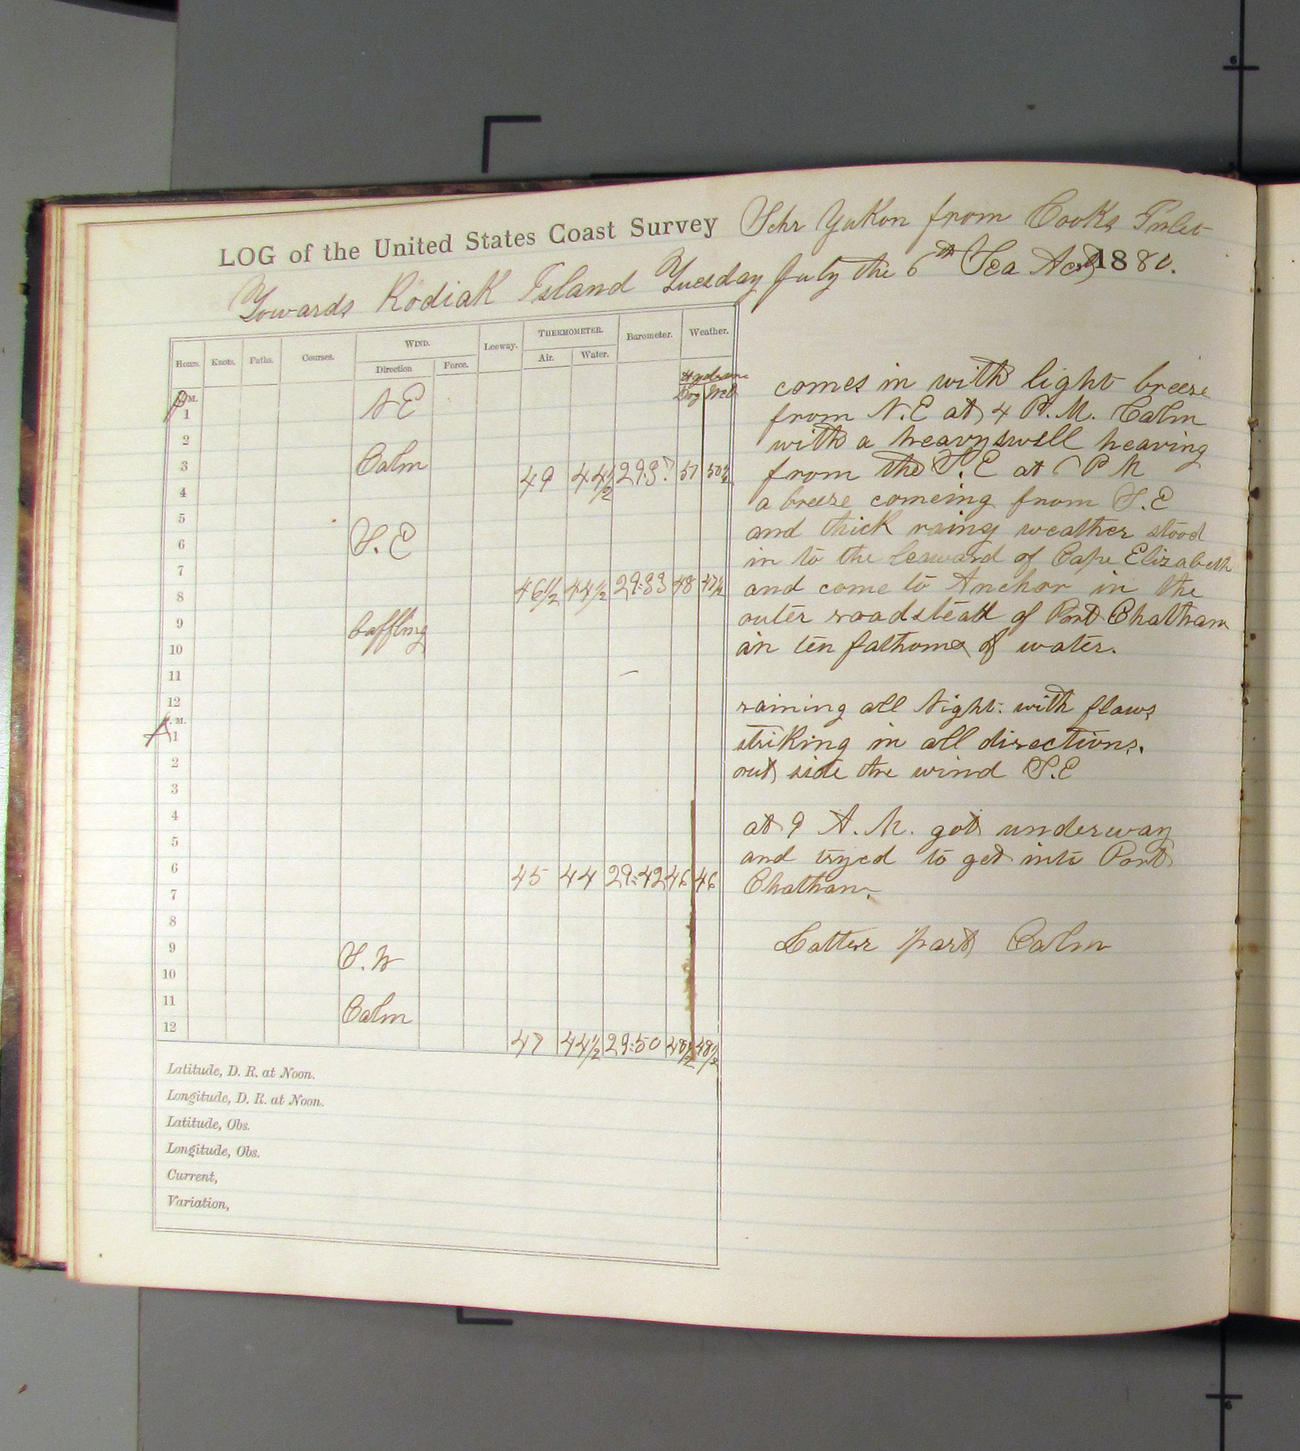 LOG of the United States Coast Survey Schr Yukon from Cooks Inlet
Towards Kodiak Island Tuesday July the 6th Sea Act 1880.
Hours. Knots. Faths. Courses. WIND. Leeway. THERMOMETER. Barometer. Weather.
Direction Force. Air. Water.
Dry Wet
P.M.
1 N E
2
3 Calm
4 49 44½ 51 50½
5
6 S. E
7
8 46½ 44½ 29:83 48 47½
9
10 baffling
11
12
A.M.
1
2
3
4
5
6 45 44 29:42 46 46
7
8
9
10 S. W
11
12 Calm
47 44½ 29:50 48½ 48½
Latitude, D. R. at Noon.
Longitude, D. R. at Noon.
Latitude, Obs.
Longitude, Obs.
Current,
Variation,
comes in with light breeze
from N. E at 4 P. M. Calm
with a heavy swell heaving
from the S. E at P M
a breeze comeing from S. E
and thick rainy weather stood
in to the leaward of Cape Elizabeth
and come to Anchor in the
outer roadstead of Port Chatham
in ten fathoms of water.
raining all Night. with flaws
striking in all directions.
out side the wind S. E
at 9 A. M. got underway
and tryed to get into Port
Chatham.
Latter part Calm